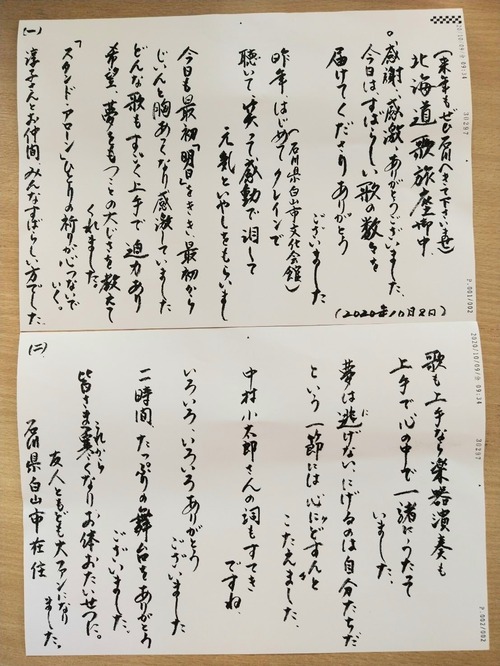 (来年もぜひ石川へきて下さいませ)
北海道歌旅座御中
。感謝、感激、ありがとうございました、
今日はすばらしい歌の数々を
届けてくださりありがとう
ございました
(2020年10月8日)
(石川県白山市文化会館)
昨年はじめてクレインで
聴いて、笑って感動で泪して
元気といやしをもらいまし
今日も最初「明日」をきき、最初から
じぃんと胸あつくなり感激していました
どんな歌もすごく上手で迫力あり
希望、夢をもつことの大じさを教えて
くれました、
「スタンド・アローン」ひとりの祈りが心つないで
いく。
淳子さんとお仲間みんなすばらしい方でした
(一)
2020/10/09/金 09:34
30297
P.001/002
歌も上手なら楽器演奏も
上手で心の中で一緒にうたって
いました、
夢は逃げない、にげるのは自分たちだ
に
という一節には心にどすんと
こたえました、
中村小太郎さんの詞もすてき
ですね、
いろいろいろいろありがとう
ございました
二時間、たっぷりの舞台をありがとう
ございました、
これから
皆さま寒くなりお体おたいせつに。
友人ともども大ファンになり
ました。
石川県白山市在住
(二)
2020/10/09/金 09:34
30297
P.002/002